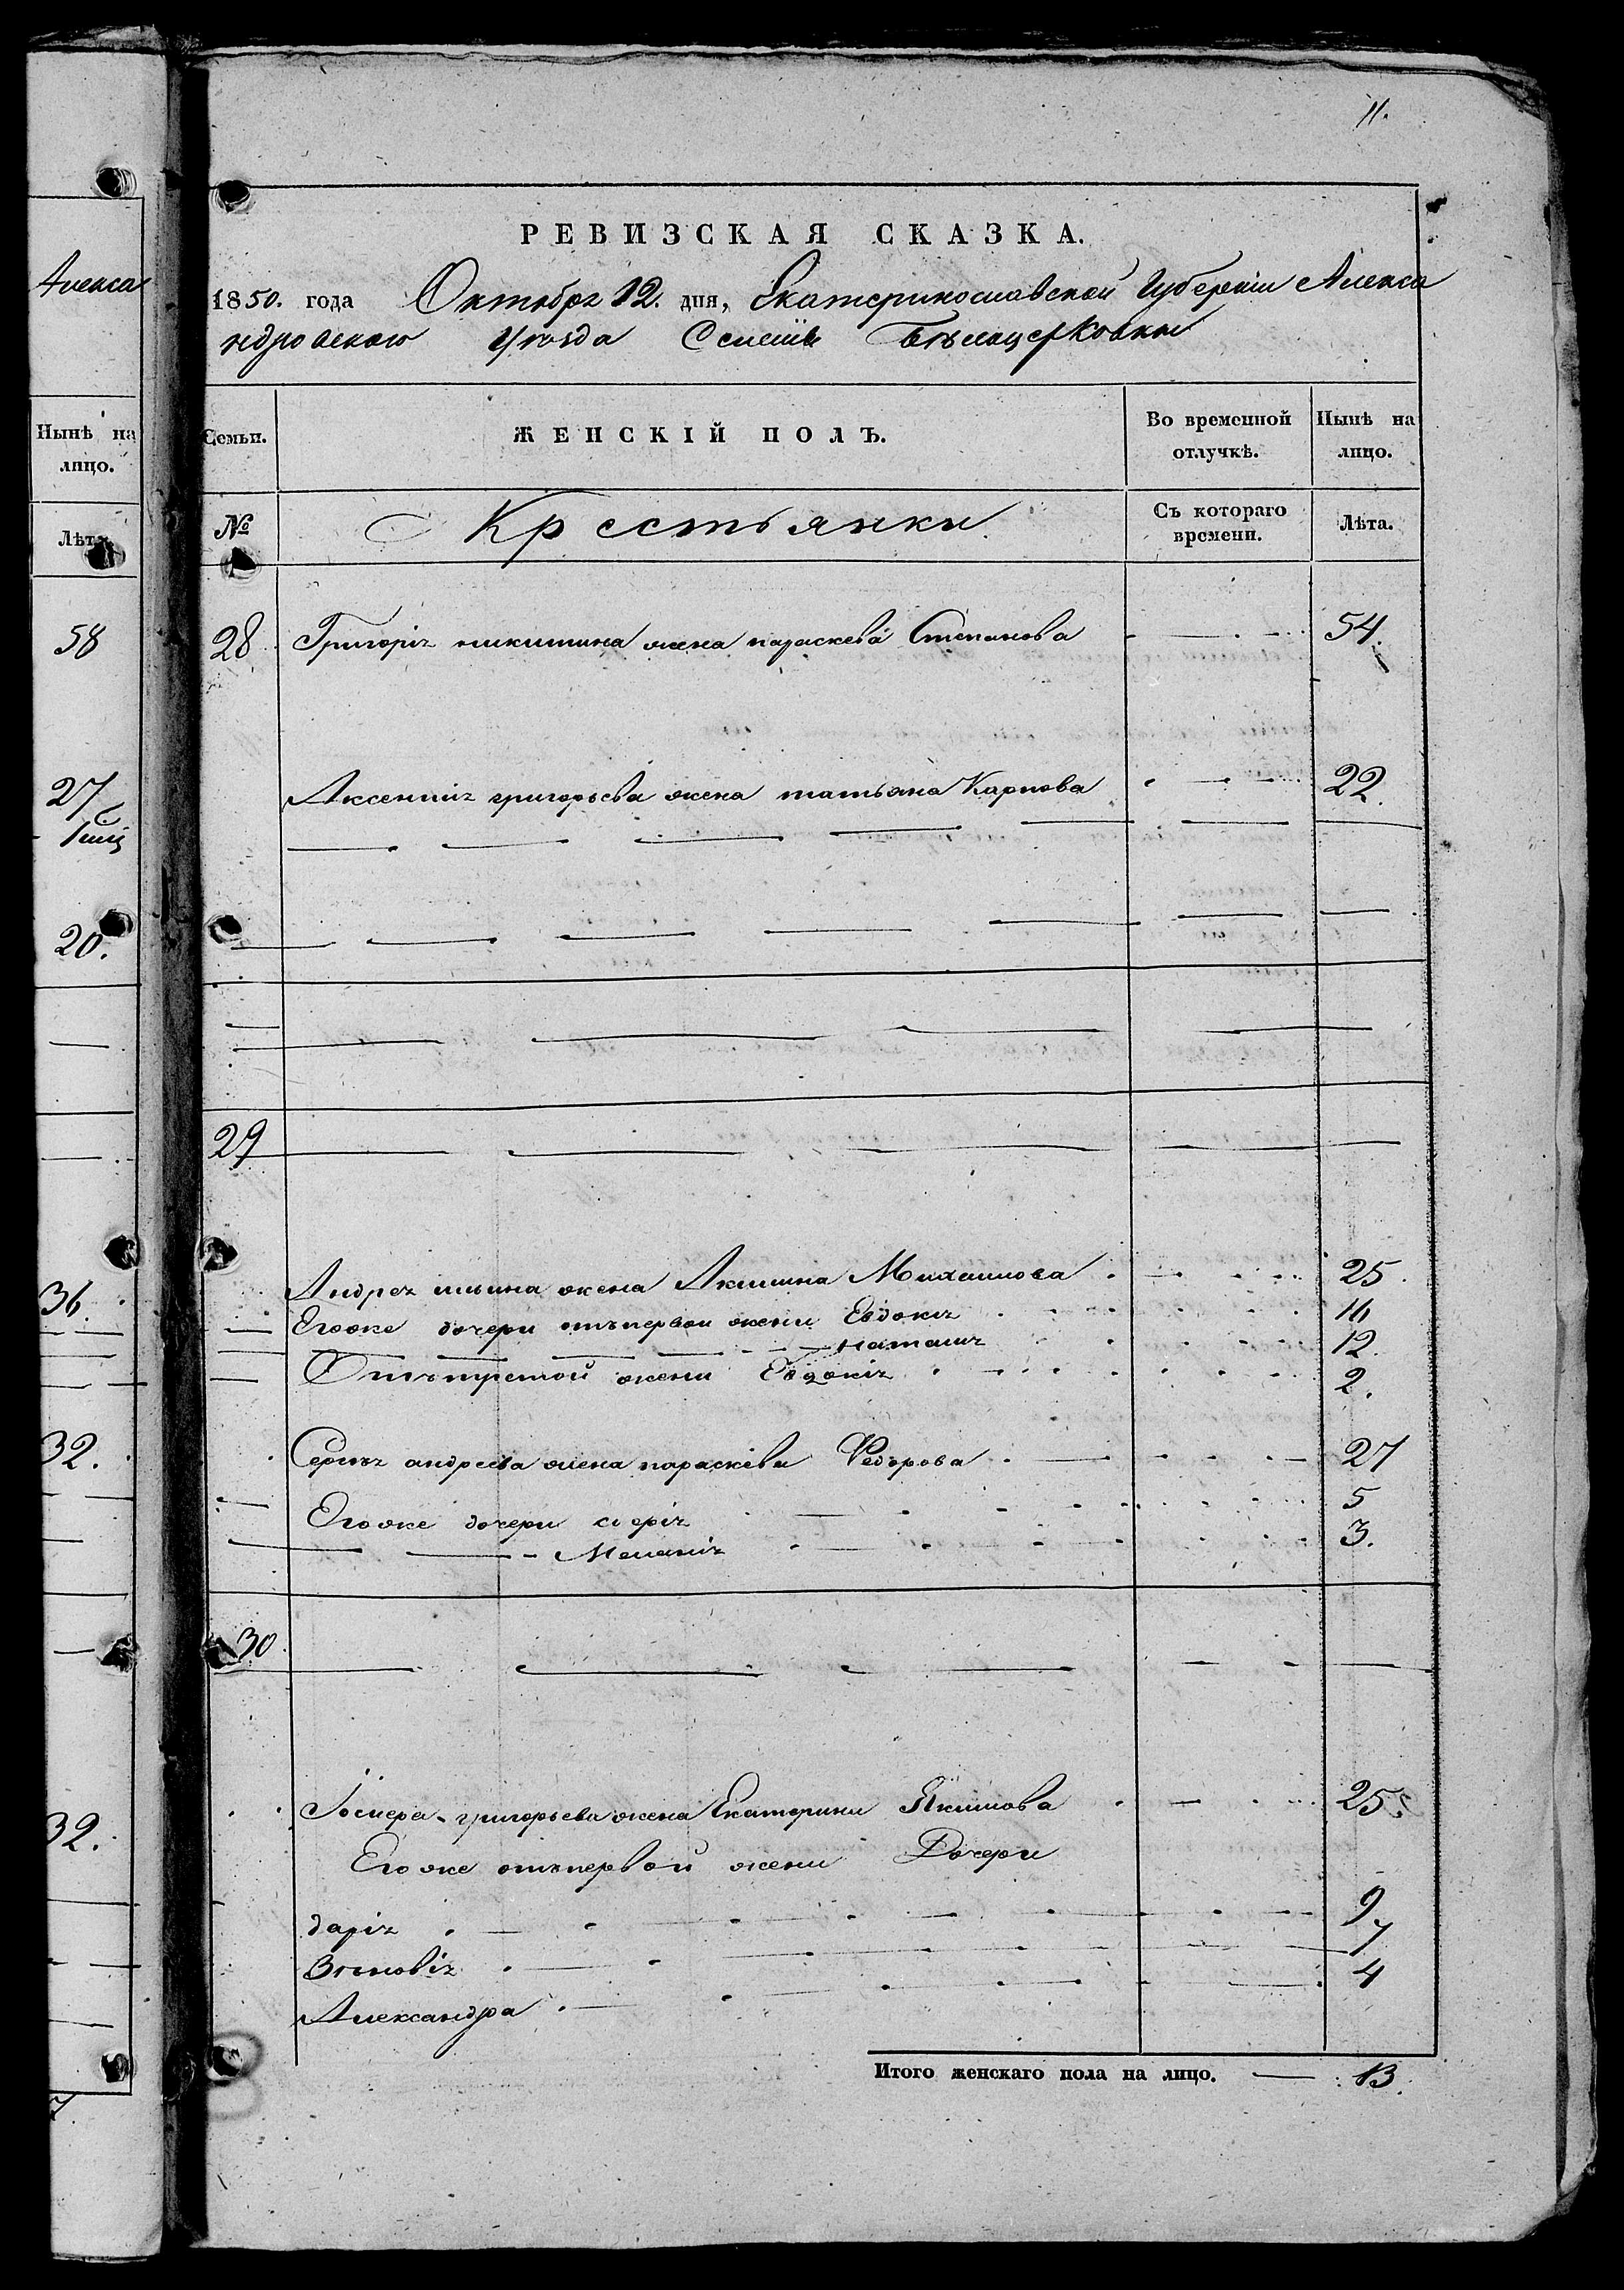 11.
РЕВИЗСКАЯ СКАЗКА.
Алекса
1850. года Октября 12. дня, Екатеринославской Губерніи Алекса
ндровскаго Уѣзда Селенія Бѣлацерковки
Нынѣ на лицо.
Лѣта
58
27
20.
36.
32.
32.
Семьи. ЖЕНСКІЙ ПОЛЪ. Во временной отлучкѣ. Нынѣ на лицо.
№ Крестьянки Съ котораго времени. Лѣта.
28 Григорія никитина жена параскева Степанова 54.
Аксентія григорьева жена татьяна Карпова 22.
29
Андрея ильина жена Акилина Михаилова 25.
Егоже дочери отъпервои жени Евдокія 16
наталія 12.
Отътретой жени Евдокія 2.
Сергѣя андреева жена параскева Федорова 27
Егоже дочери 5
Меланія 3.
30.
григорьева жена Екатерина Якимова 25
Егоже отъпервой жени Дочери
дарія 9
Зѣновія 7
Александра 4
Итого женскаго пола на лицо. 13.